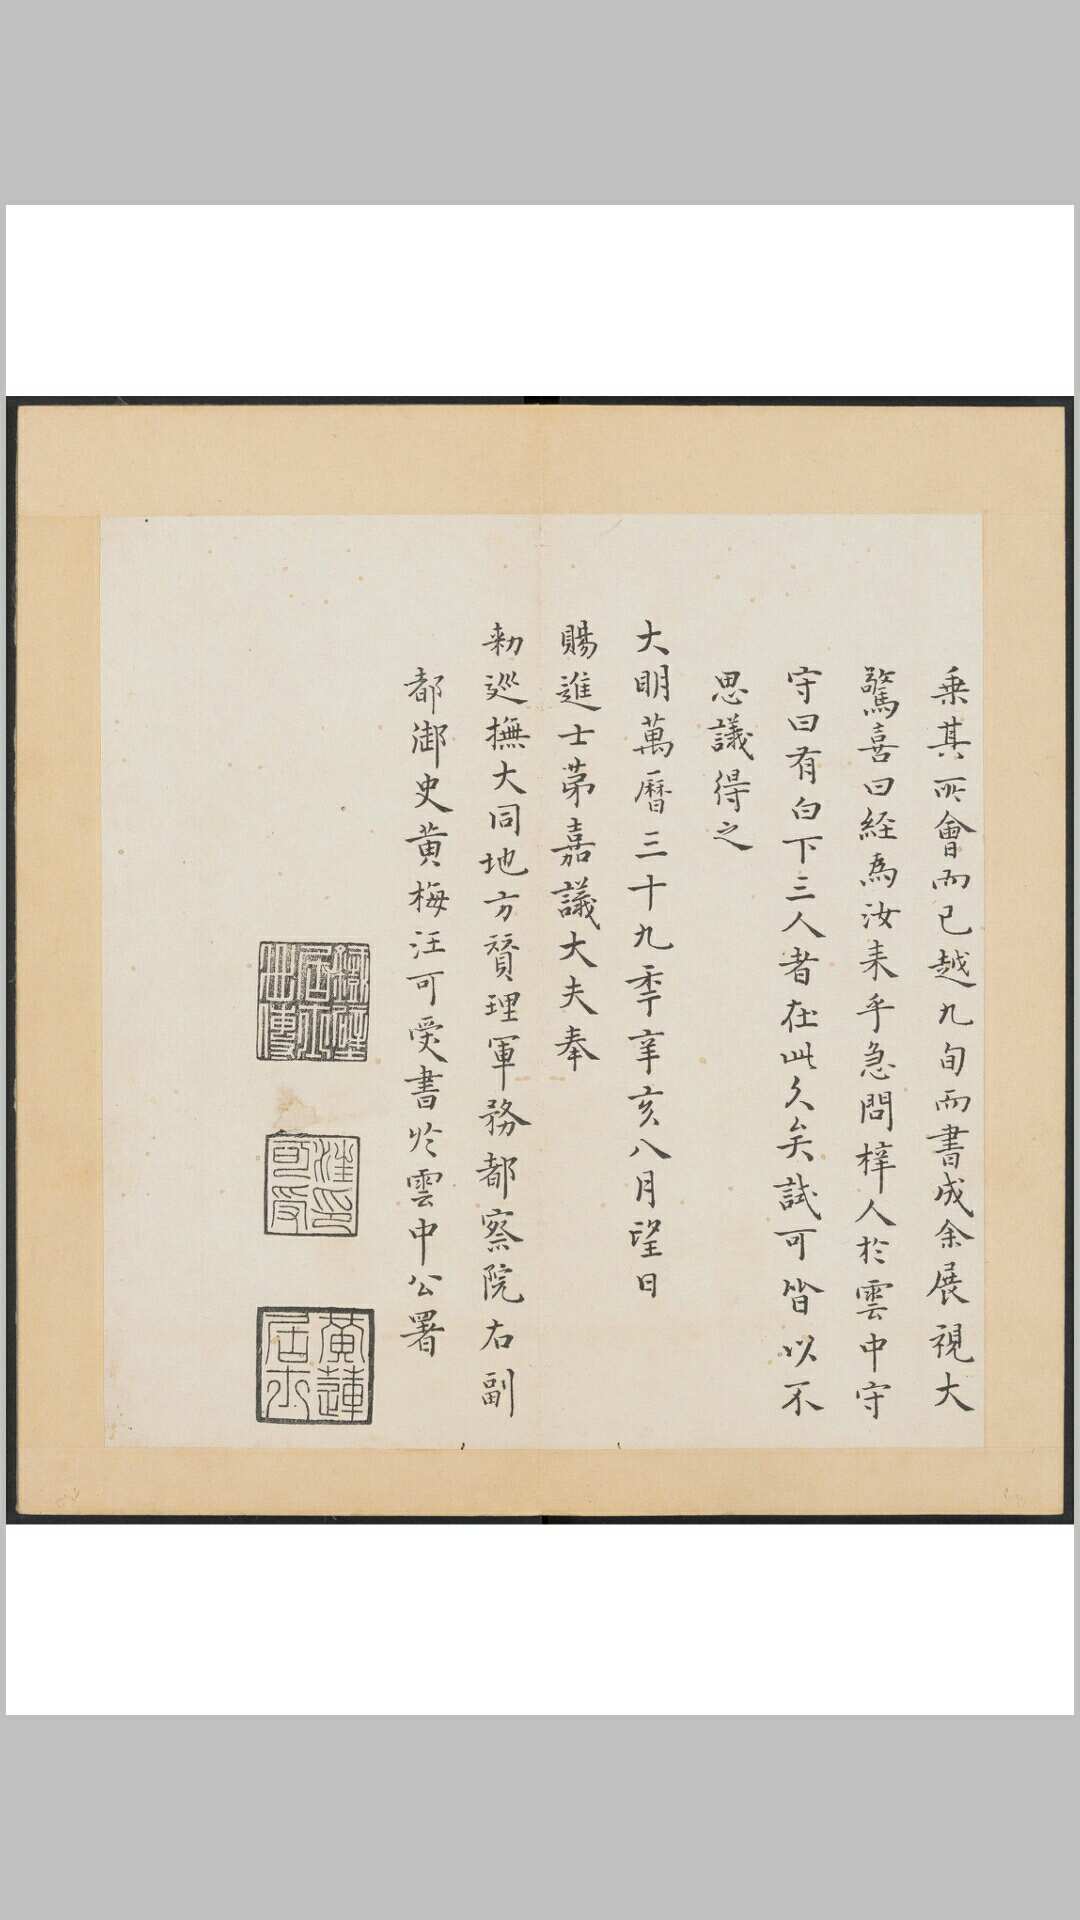 乗其所會而已越九旬而書成余展視大
驚喜曰経為汝来乎急問梓人於雲中守
守曰有白下三人者在此久矣試可皆以不
思議得之
大明萬曆三十九秊辛亥八月望日
賜進士苐嘉議大夫奉
勑巡撫大同地方賛理軍務都察院右副
都御史黄梅汪可受書於雲中公署
汪印可受
黄蓮居士